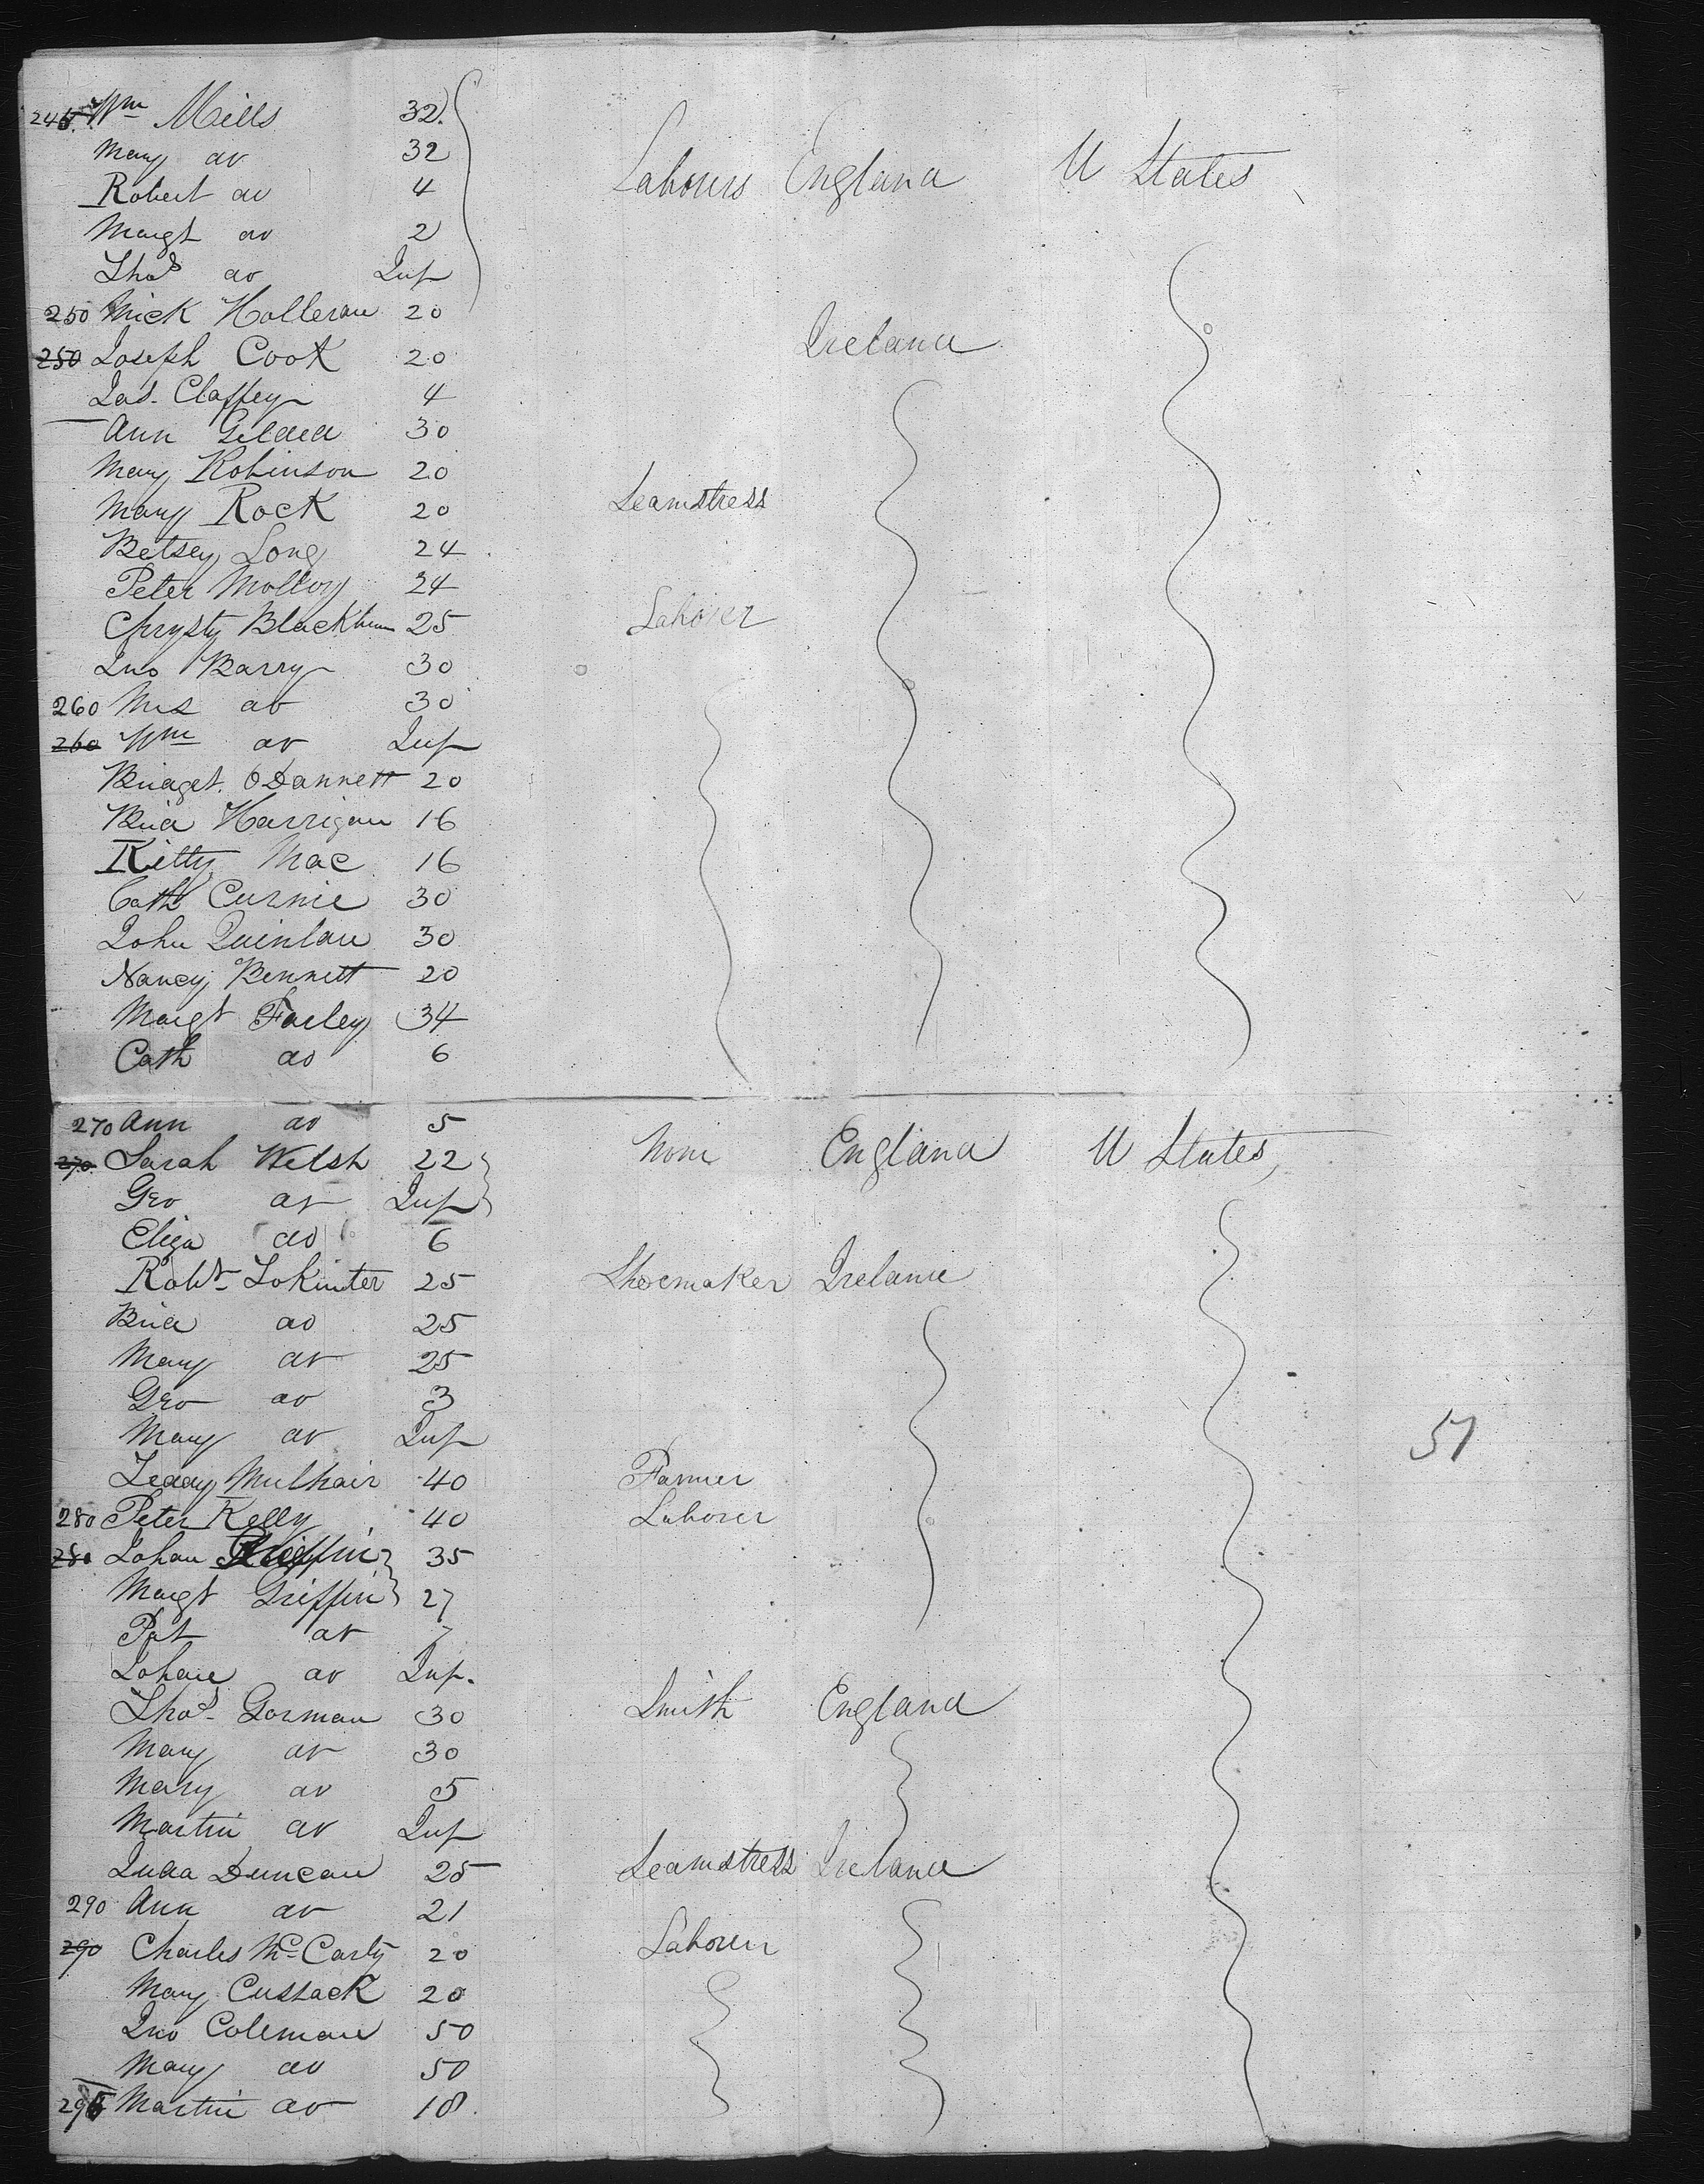 245 Wm Mills 32 Labours England U States
Mary do 32
Robert do 4
Margt do 2
Thos do Inf
250 Mick Holleran 20
250 Joseph Cook 20 Ireland
Jas. Claffey 4
Ann 30
Mary Robinson 20
Mary Rock 20 Seamstress
Betsey Long 24
Peter Molloy 24
Chrysty Blackburn 25 Laborer
Jno Barry 30
260 Mrs do 30
260 Wm do Inf
Bridget. O Dannett 20
Brid Harrigan 16
Kitty Mac 16
Cath Curnie 30
John Quinlan 30
Nancy Bennett 20
Margt Farley 34
Cath do 6
270 Ann do 5 None England U States
270 Sarah Welsh 22
Geo do Inf
Eliza do 6
Robt Lokinter 25 Shoemaker Ireland
Brid do 25
Mary do 25
Geo do 3
Mary do Inf
Teddy Mulhair 40 Farmer
280 Peter Kelly 40 Laborer
280 Johan Griffin 35
Margt Griffin 27
Pat do 7
Johan do Inf.
Thos Gorman 30 Smith England
Mary do 30
Mary do 5
Martin do Inf
Juda Duncan 25 Seamstress Ireland
290 Ann do 21
290 Charles McCarty 20 Laborer
Mary Cussack 20
Jno Coleman 50
Mary do 50
296 Martin do 18
51